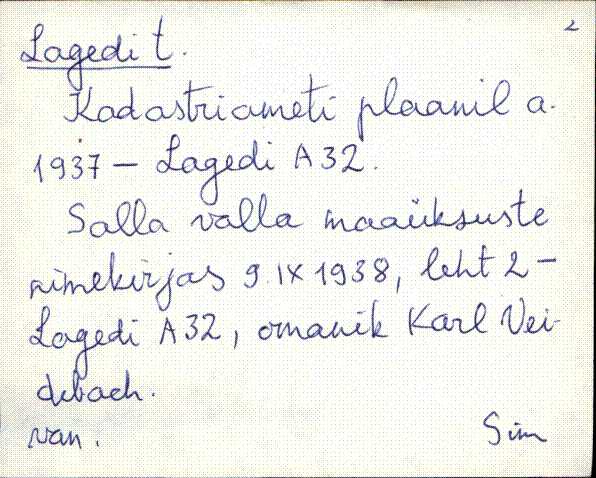 2
Lagedi t.
Kadastriameti plaanil a.
1937 — Lagedi A 32.
Salla valla maaüksuste
nimekirjas 9.IX 1938, leht 2 —
Lagedi A 32, omanik Karl Vei-
debach.
van. Sim